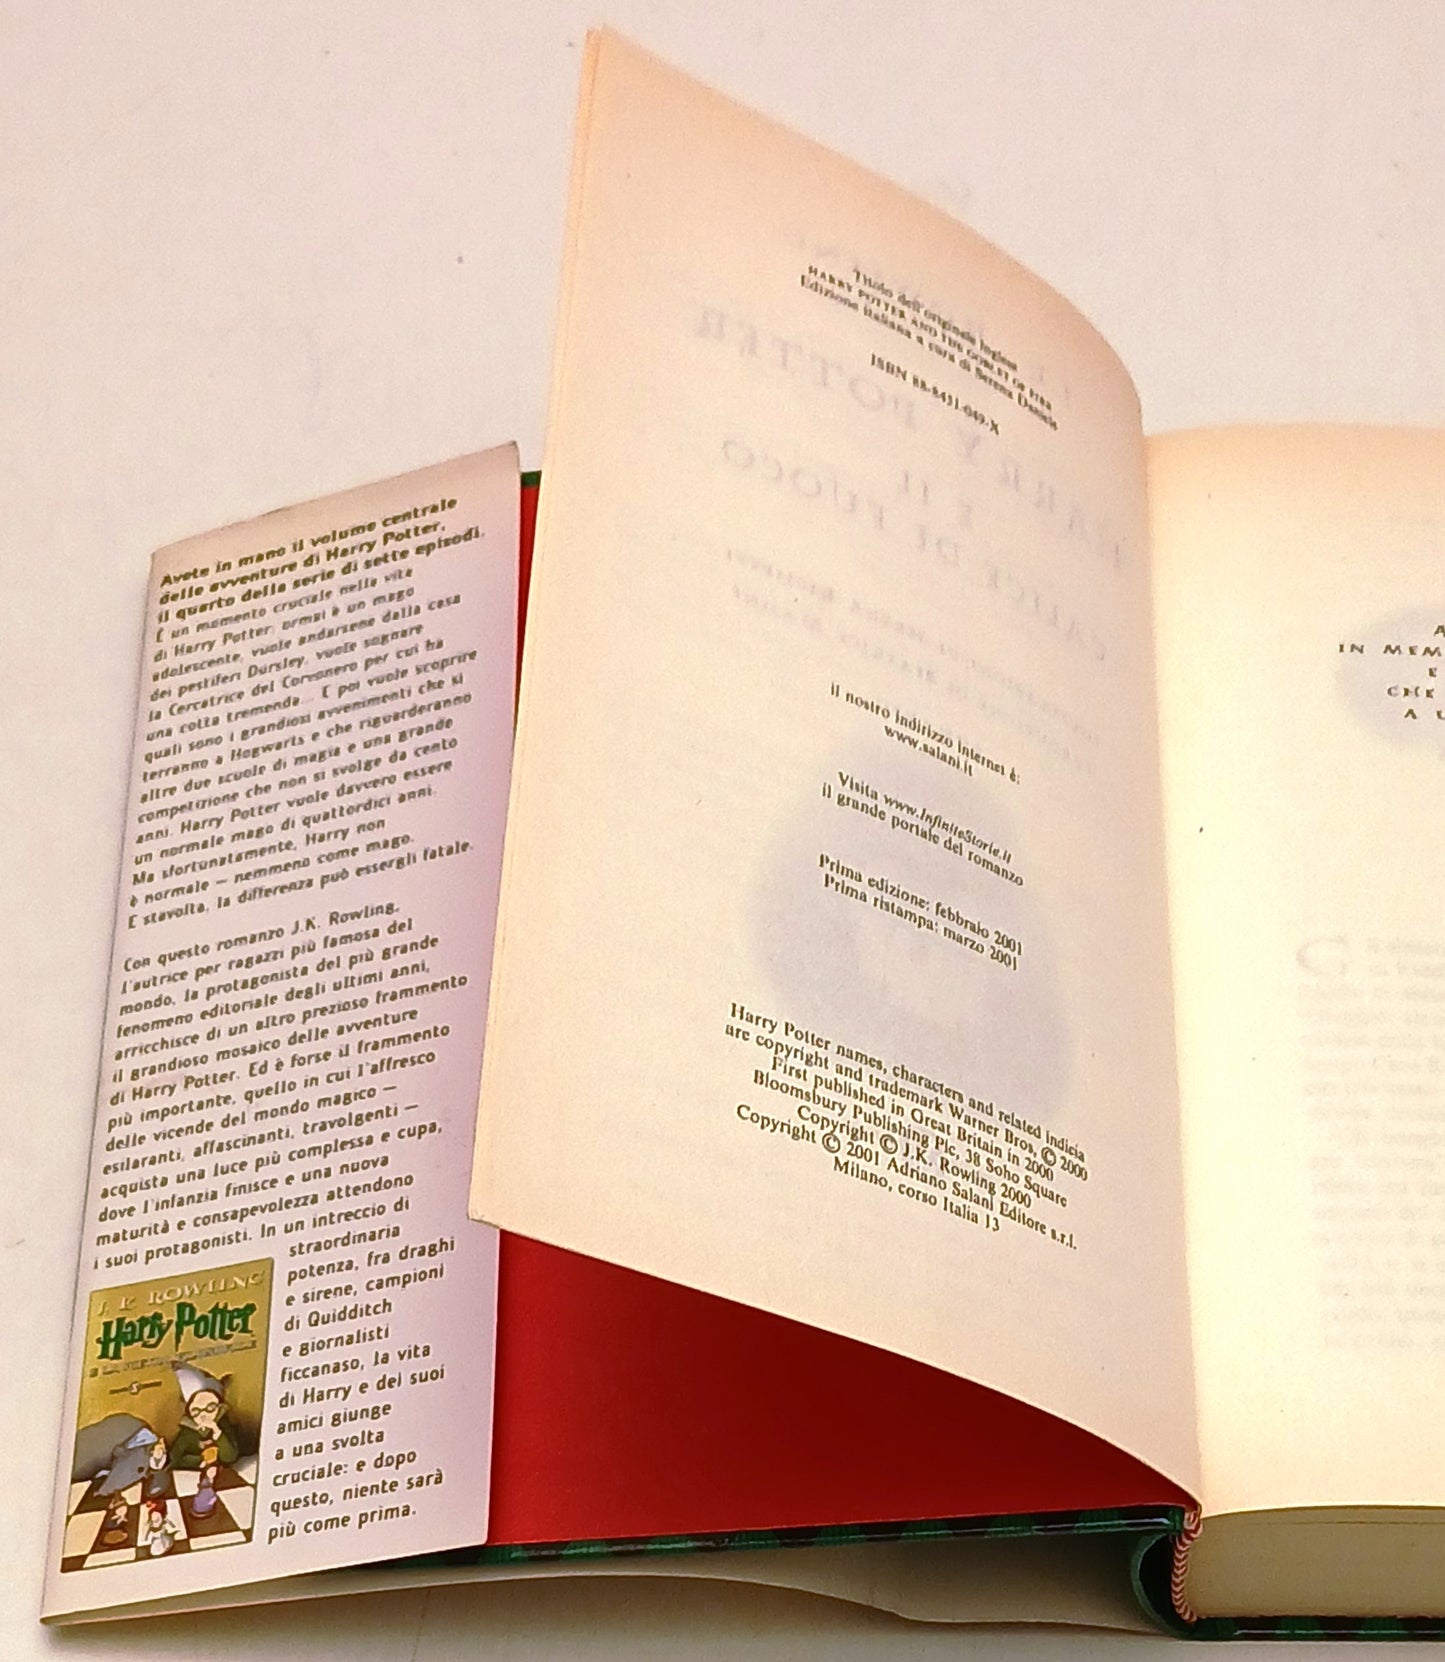 Avete in mano il volume centrale
delle avventure di Harry Potter,
il quarto della serie di sette episodi.
È un momento cruciale nella vita
di Harry Potter: ormai è un mago
adolescente, vuole andarsene dalla casa
dei pestiferi Dursley, vuole sognare
la Cercatrice del Corvonero per cui ha
una cotta tremenda... E poi vuole scoprire
quali sono i grandiosi avvenimenti che si
terranno a Hogwarts e che riguarderanno
altre due scuole di magia e una grande
competizione che non si svolge da cento
anni. Harry Potter vuole davvero essere
un normale mago di quattordici anni.
Ma sfortunatamente, Harry non
è normale – nemmeno come mago.
E stavolta, la differenza può essergli fatale.
Con questo romanzo J.K. Rowling,
l'autrice per ragazzi più famosa del
mondo, la protagonista del più grande
fenomeno editoriale degli ultimi anni,
arricchisce di un altro prezioso frammento
il grandioso mosaico delle avventure
di Harry Potter. Ed è forse il frammento
più importante, quello in cui l'affresco
delle vicende del mondo magico –
esilaranti, affascinanti, travolgenti –
acquista una luce più complessa e cupa,
dove l'infanzia finisce e una nuova
maturità e consapevolezza attendono
i suoi protagonisti. In un intreccio di
straordinaria
potenza, fra draghi
e sirene, campioni
di Quidditch
e giornalisti
ficcanaso, la vita
di Harry e dei suoi
amici giunge
a una svolta
cruciale: e dopo
questo, niente sarà
più come prima.
J. K. ROWLING
Harry Potter
Titolo dell'originale inglese
HARRY POTTER AND THE GOBLET OF FIRE
Edizione italiana a cura di Serena Daniele
ISBN 88-8451-049-X
il nostro indirizzo internet è:
www.salani.it
Visita www.InfiniteStorie.it
il grande portale del romanzo
Prima edizione: febbraio 2001
Prima ristampa: marzo 2001
Harry Potter names, characters and related indicia
are copyright and trademark Warner Bros, © 2000
First published in Great Britain in 2000
Bloomsbury Publishing Plc, 38 Soho Square
Copyright © J.K. Rowling 2000
Copyright © 2001 Adriano Salani Editore s.r.l.
Milano, corso Italia 13
A
IN MEM
E
CHE
A